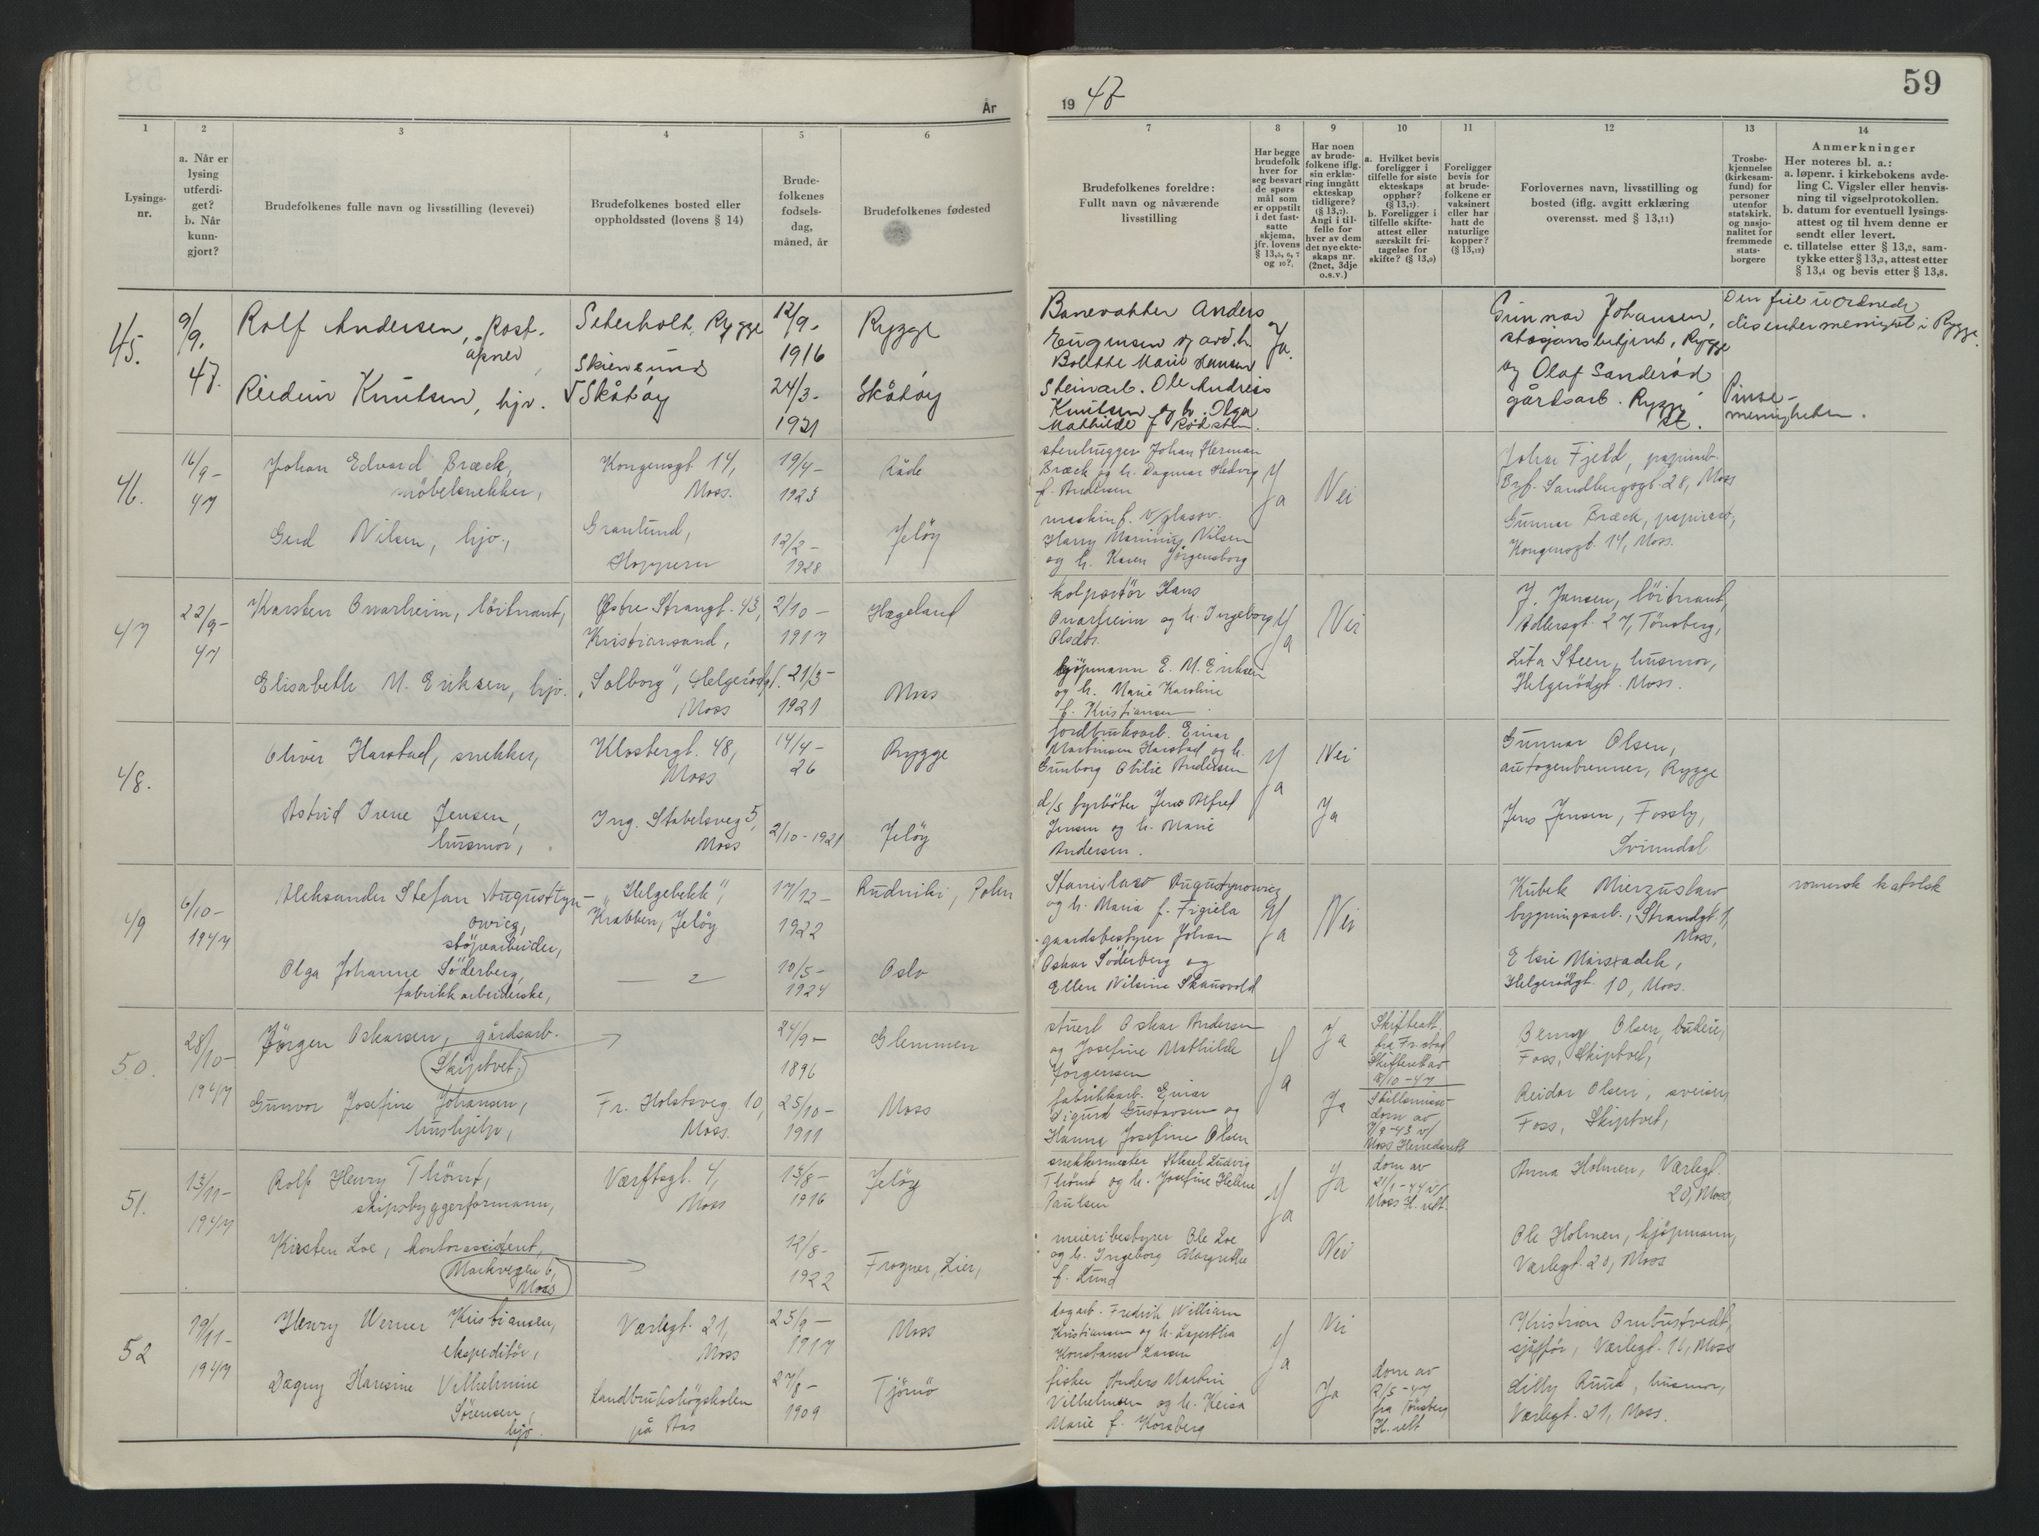 59
År
19 47
1
2
3
4
5
6
7
8
9
10
11
12
13
14
Lysings-
nr.
a. Når er
lysing
utferdi-
get?
b. Når
kunn-
gjort?
Brudefolkenes fulle navn og livsstilling (levevei)
Brudefolkenes bosted eller
oppholdssted (lovens § 14)
Brude-
folkenes
fødsels-
dag,
måned, år
Brudefolkenes fødested
Brudefolkenes foreldre:
Fullt navn og nåværende
livsstilling
Har begge
brudefolk
hver for
seg besvart
de spørs
mål som
er oppstilt
i det fast-
satte
skjema,
jfr. lovens
§ 13,5, 6, 7
og 10?.
Har noen
av brude-
folkene iflg.
sin erklæ-
ring inngått
ekteskap
tidligere?
(§ 13,7).
Angi i til-
felle for
hver av dem
det nye ekte-
skaps nr.
(2net, 3dje
o.s.v.)
a. Hvilket bevis
foreligger i
tilfelle for siste
ekteskaps
opphør?
(§ 13,7)
b. Foreligger i
tilfelle skifte-
attest eller
særskilt fri-
tagelse for
skifte? (§ 13,9)
Foreligger
bevis for
at brude-
folkene er
vaksinert
eller har
hatt de
naturlige
kopper?
(§ 13,12)
Forlovernes navn, livsstilling og
bosted (iflg. avgitt erklæring
overensst. med § 13,11)
Trosbe-
kjennelse
(kirkesam-
fund) for
personer
utenfor
statskirk.
og nasjo-
nalitet for
fremmede
stats-
borgere
Anmerkninger
Her noteres bl. a.:
a. løpenr. i kirkebokens avde-
ling C. Vigsler eller henvis-
ning til vigselprotokollen.
b. datum for eventuell lysings-
attest og til hvem denne er
sendt eller levert.
c. tillatelse etter § 13,2, sam-
tykke etter § 13,3, attest etter
§ 13,4 og bevis etter § 13,8.
45.
9/9.
47.
Rolf Andersen, Post-
åpner,
Seterholt, Rygge
12/9-
1916
Rygge
Reidun Knutsen, hjv.
Skåtøy
24/3-
1921
Skåtøy
Banevokter Anders
Bolette Marie Hansen
Steinarb. Ole Andreas
Knutsen og h. Olga
Mathilde f
Ja.
Gunnar Johansen,
stasjonsbetjent, Rygge
og Olaf Sanderød
gårdsarb. Rygge
Den frie
dissentermenighet i Rygge.
Pinse-
menigheten.
46.
16/9-
47
Johan Edvard Bræck,
møbelsnekker,
Kongensgt 14,
Moss.
19/4-
1923
Råde
Gerd Nilsen, hjv.,
Granlund,
Hoppern
12/2-
1928
Jeløy
stenhugger Johan Herman
Bræck og h. Dagmar Hedvig
f. Andersen
maskinf. v/glassv.
Harry Marinius Nilsen
og h. Karen Jørgensborg
Ja
Nei
Johan Fjeld, papirarb.
Brf. Sandbergsgt. 28, Moss
Gunnar Bræck, papirarb,
Kongensgt. 14, Moss.
47
22/9-
47
Karsten Omarheim, löitnant,
Østre Strandgt. 43,
Kristiansand,
2/10-
1917
Hægeland
Elisabeth M. Eriksen, hjv.
"Solborg", Helgerødgt.
Moss
21/3-
1921
Moss
kolportör Hans
Omarheim og h. Ingeborg
Olsdtr.
kjøpmann E. M. Eriksen
og h. Marie Karoline
f. Kristiansen
Ja
Nei
J. Jansen, löitnant,
Adlersgt. 27, Tönsberg,
Lita Steen, husmor,
Helgerødgt. Moss.
48.
Oliver Harstad, snekker,
Klostergt. 48,
Moss
14/4-
26
Rygge
Astrid Irene Jensen,
husmor,
Ing. Stabelsveg 5,
Moss
2/10-1921
Jeløy
jordbruksarb. Einar
Martinsen Harstad og h.
Gunborg Otilie Andersen
d/s fyrbøter Jens Alfred
Jensen og h. Marie
Andersen.
Ja
Nei
Ja
Gunnar Olsen,
autogenbrenner, Rygge
Jens Jensen, Fossby,
Svinndal
49
6/10-
1947
Aleksander Stefan Augustyn-
owicz,
støperarbeider,
"Helgebekk",
Krabben, Jeløy
17/12-
1922
Rudniki, Polen
Olga Johanne Söderberg,
fabrikkarbeiderske,
10/5-
1924
Oslo
Stanislaw Augustynowicz
og h. Maria f. Figiela
gaardsbestyrer Johan
Oskar Söderberg og
Ellen Nilsine Skausvold
Ja
Nei
Kubek Mierzuslaw
bygningsarb., Strandgt. 1,
Moss,
Elsie Marstadek,
Helgerödgt. 10, Moss.
romersk katolsk
50.
28/10-
1947
Jörgen Oskarsen, gårdsarb.
Skiptvet,
24/9-
1896
Glemmen
Gunvor Josefine Johansen,
hushjelp,
Fr. Holstsveg 10,
Moss.
25/10-
1911
Moss
stuert Oskar Andersen
og Josefine Mathilde
Jörgensen
fabrikkarb. Einar
Sigurd Gustavsen og
Hanna Josefine Olsen
Ja
Ja
Ja
Skifteatt.
fra Fr.stad
Skifterett av
/10-47
Skilsmisse-
dom av
7/9-43 v/
Moss Herredsrett
Benny Olsen, budeie,
Foss, Skiptvet,
Reidar Olsen, sveiser,
Foss, Skiptvet,
51.
13/11-
1947
Rolf Henry Thömt,
skipsbyggerformann,
Værftsgt. 4,
Moss
13/8-
1916
Jeløy
Kirsten Loe, kontorassistent,
Markvegen 6,
Moss
12/8-
1922
Frogner, Lier,
snekkermester Aksel Ludvig
Thömt og h. Josefine Helene
Paulsen
meieribestyrer Ole Loe
og h. Ingeborg Margrethe
f. Lund
Ja
Ja
Nei
dom av
21/1-44 v/
Moss H.rett.
Anna Holmen, Værlegt.
20, Moss,
Ole Holmen, kjøpmann,
Værlegt. 20, Moss
52
19/11-
1947
Henry Werner Kristiansen,
ekspeditör,
Værlegt. 21,
Moss
25/9-
1917
Moss
Dagny Hansine Vilhelmine
Sørensen,
hjv.
Landbrukshögskolen
på Aas
27/8-
1909
Tjömö
dagarb. Fredrik William
Kristiansen og h. Lagertha
Konstanse Larsen
fisker Anders Martin
Vilhelmsen og h. Keisa
Marie f. Korsberg
Ja
Nei
Ja
dom av
2/5-47
fra Tönsberg
H.rett
Kristian Ombustvedt,
sjåffør, Værlegt. 11, Moss
Lilly Ruud, husmor,
Værlegt. 21, Moss.